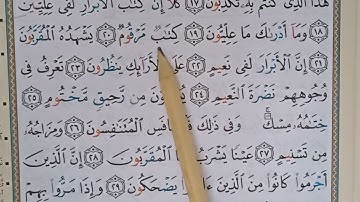 هَٰذَا الَّذِي كُنتُم بِهِ تُكَذِّبُونَ ١٧ كَلَّا إِنَّ كِتَٰبَ الْأَبْرَارِ لَفِي عِلِّيِّينَ
١٨ وَمَا أَدْرَىٰكَ مَا عِلِّيُّونَ ١٩ كِتَٰبٌ مَّرْقُومٌ ٢٠ يَشْهَدُهُ الْمُقَرَّبُونَ
٢١ إِنَّ الْأَبْرَارَ لَفِي نَعِيمٍ ٢٢ عَلَى الْأَرَائِكِ يَنظُرُونَ ٢٣ تَعْرِفُ فِي
وُجُوهِهِمْ نَضْرَةَ النَّعِيمِ ٢٤ مِن رَّحِيقٍ مَّخْتُومٍ ٢٥
خِتَٰمُهُ مِسْكٌ وَفِي ذَٰلِكَ الْمُتَنَٰفِسُونَ ٢٦ وَمِزَاجُهُ
مِن تَسْنِيمٍ ٢٧ عَيْنًا يَشْرَبُ الْمُقَرَّبُونَ ٢٨ إِنَّ الَّذِينَ
أَجْرَمُوا كَانُوا مِنَ الَّذِينَ يَضْحَكُونَ ٢٩ وَإِذَا مَرُّوا بِهِمْ